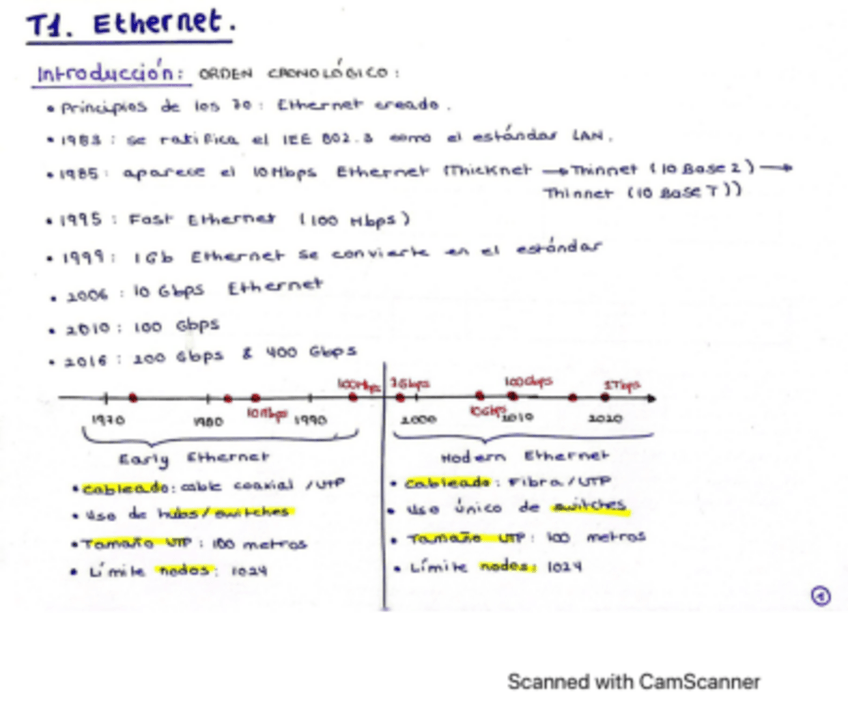 T1. Ethernet.
Introducción: ORDEN CRONOLÓGICO:
• Principios de los 70: Ethernet creado.
• 1983: se ratifica el IEE 802.3 como el estándar LAN.
• 1985: aparece el 10 Mbps Ethernet (Thicknet → Thinnet (10 Base 2) →
Thinnet (10 Base T))
• 1995: Fast Ethernet (100 Mbps)
• 1999: 1Gb Ethernet se convierte en el estándar
• 2006: 10 Gbps Ethernet
• 2010: 100 Gbps
• 2016: 200 Gbps & 400 Gbps
100Mbps 1Gbps 100Gbps 1Tbps
10Mbps 10Gbps
1970 1980 1990 2000 2010 2020
Early Ethernet
• Cableado: cable coaxial / UTP
• Uso de hubs/switches
• Tamaño UTP: 100 metros
• Límite nodos: 1024
Modern Ethernet
• Cableado: Fibra / UTP
• Uso único de switches
• Tamaño UTP: 100 metros
• Límite nodos: 1024
1
Scanned with CamScanner